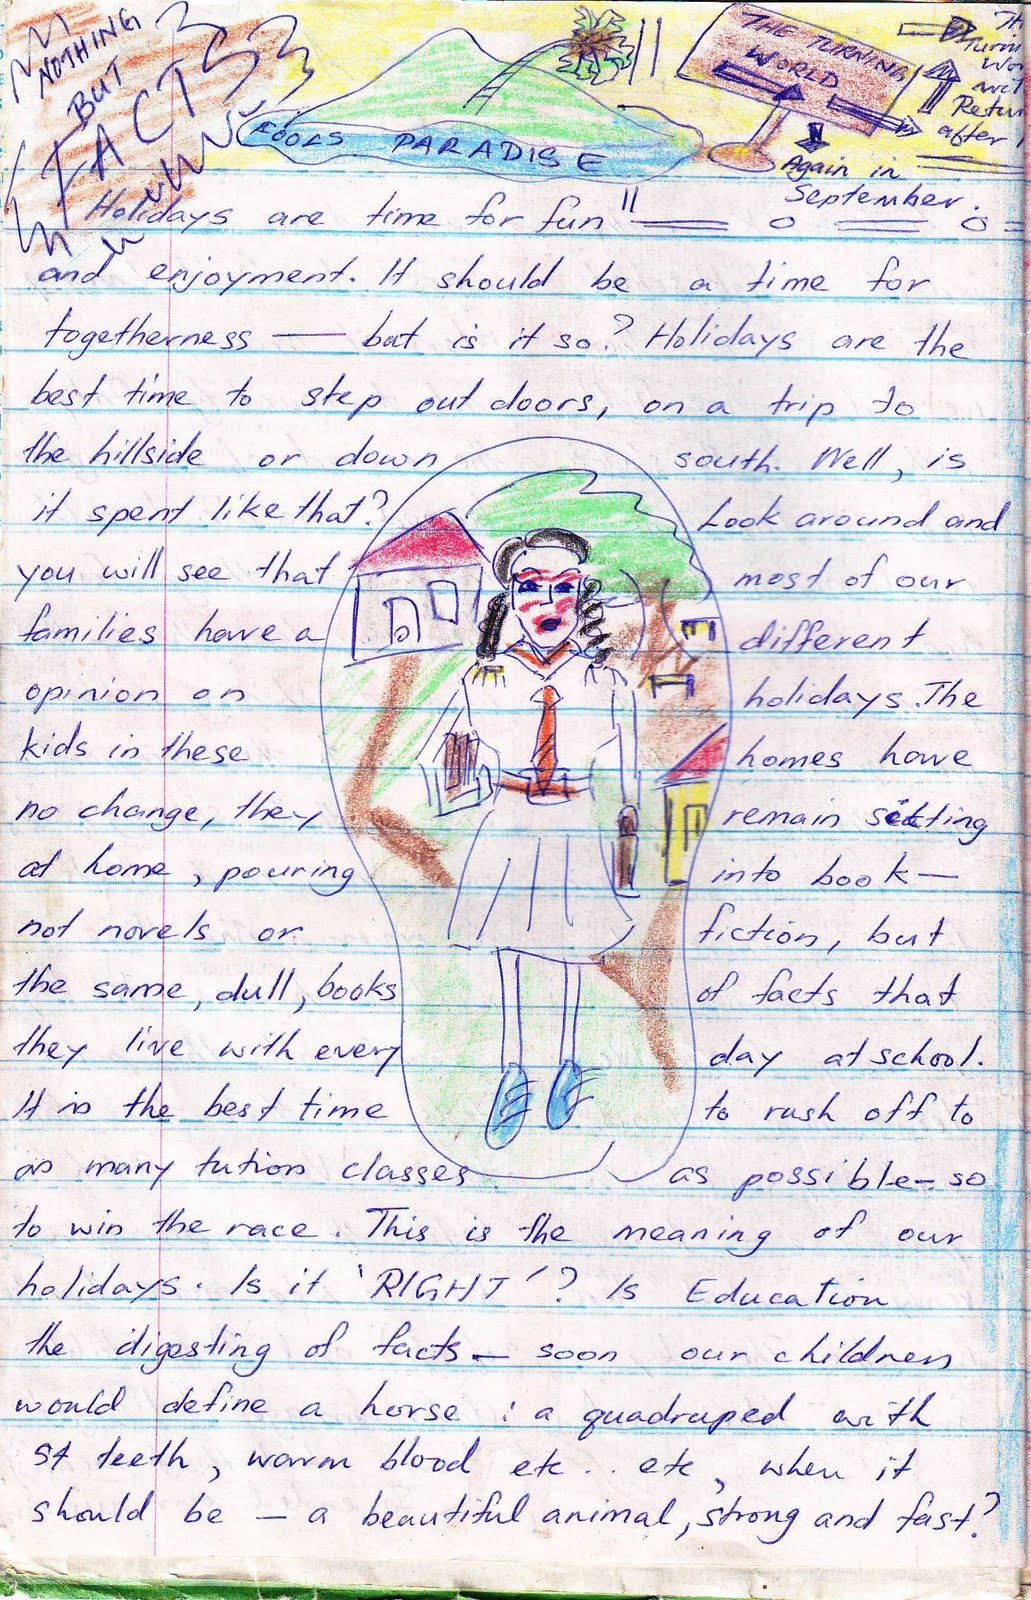 NOTHING
BUT
FACTS
FOOLS PARADISE
THE TURNING
WORLD
Again in
September.
after
Holidays are time for fun
and enjoyment. It should be a time for
togetherness — but is it so? Holidays are the
best time to step out doors, on a trip to
the hillside or down south. Well, is
it spent like that? Look around and
you will see that most of our
families have a different
opinion on holidays. The
kids in these homes have
no change, they remain sitting
at home, pouring into book —
not novels or fiction, but
the same, dull, books of facts that
they live with every day at school.
It is the best time to rush off to
as many tution classes as possible — so
to win the race. This is the meaning of our
holidays. Is it 'RIGHT'? Is Education
the digesting of facts — soon our children
would define a horse : a quadruped with
teeth, warm blood etc .. etc, when it
should be — a beautiful animal, strong and fast?